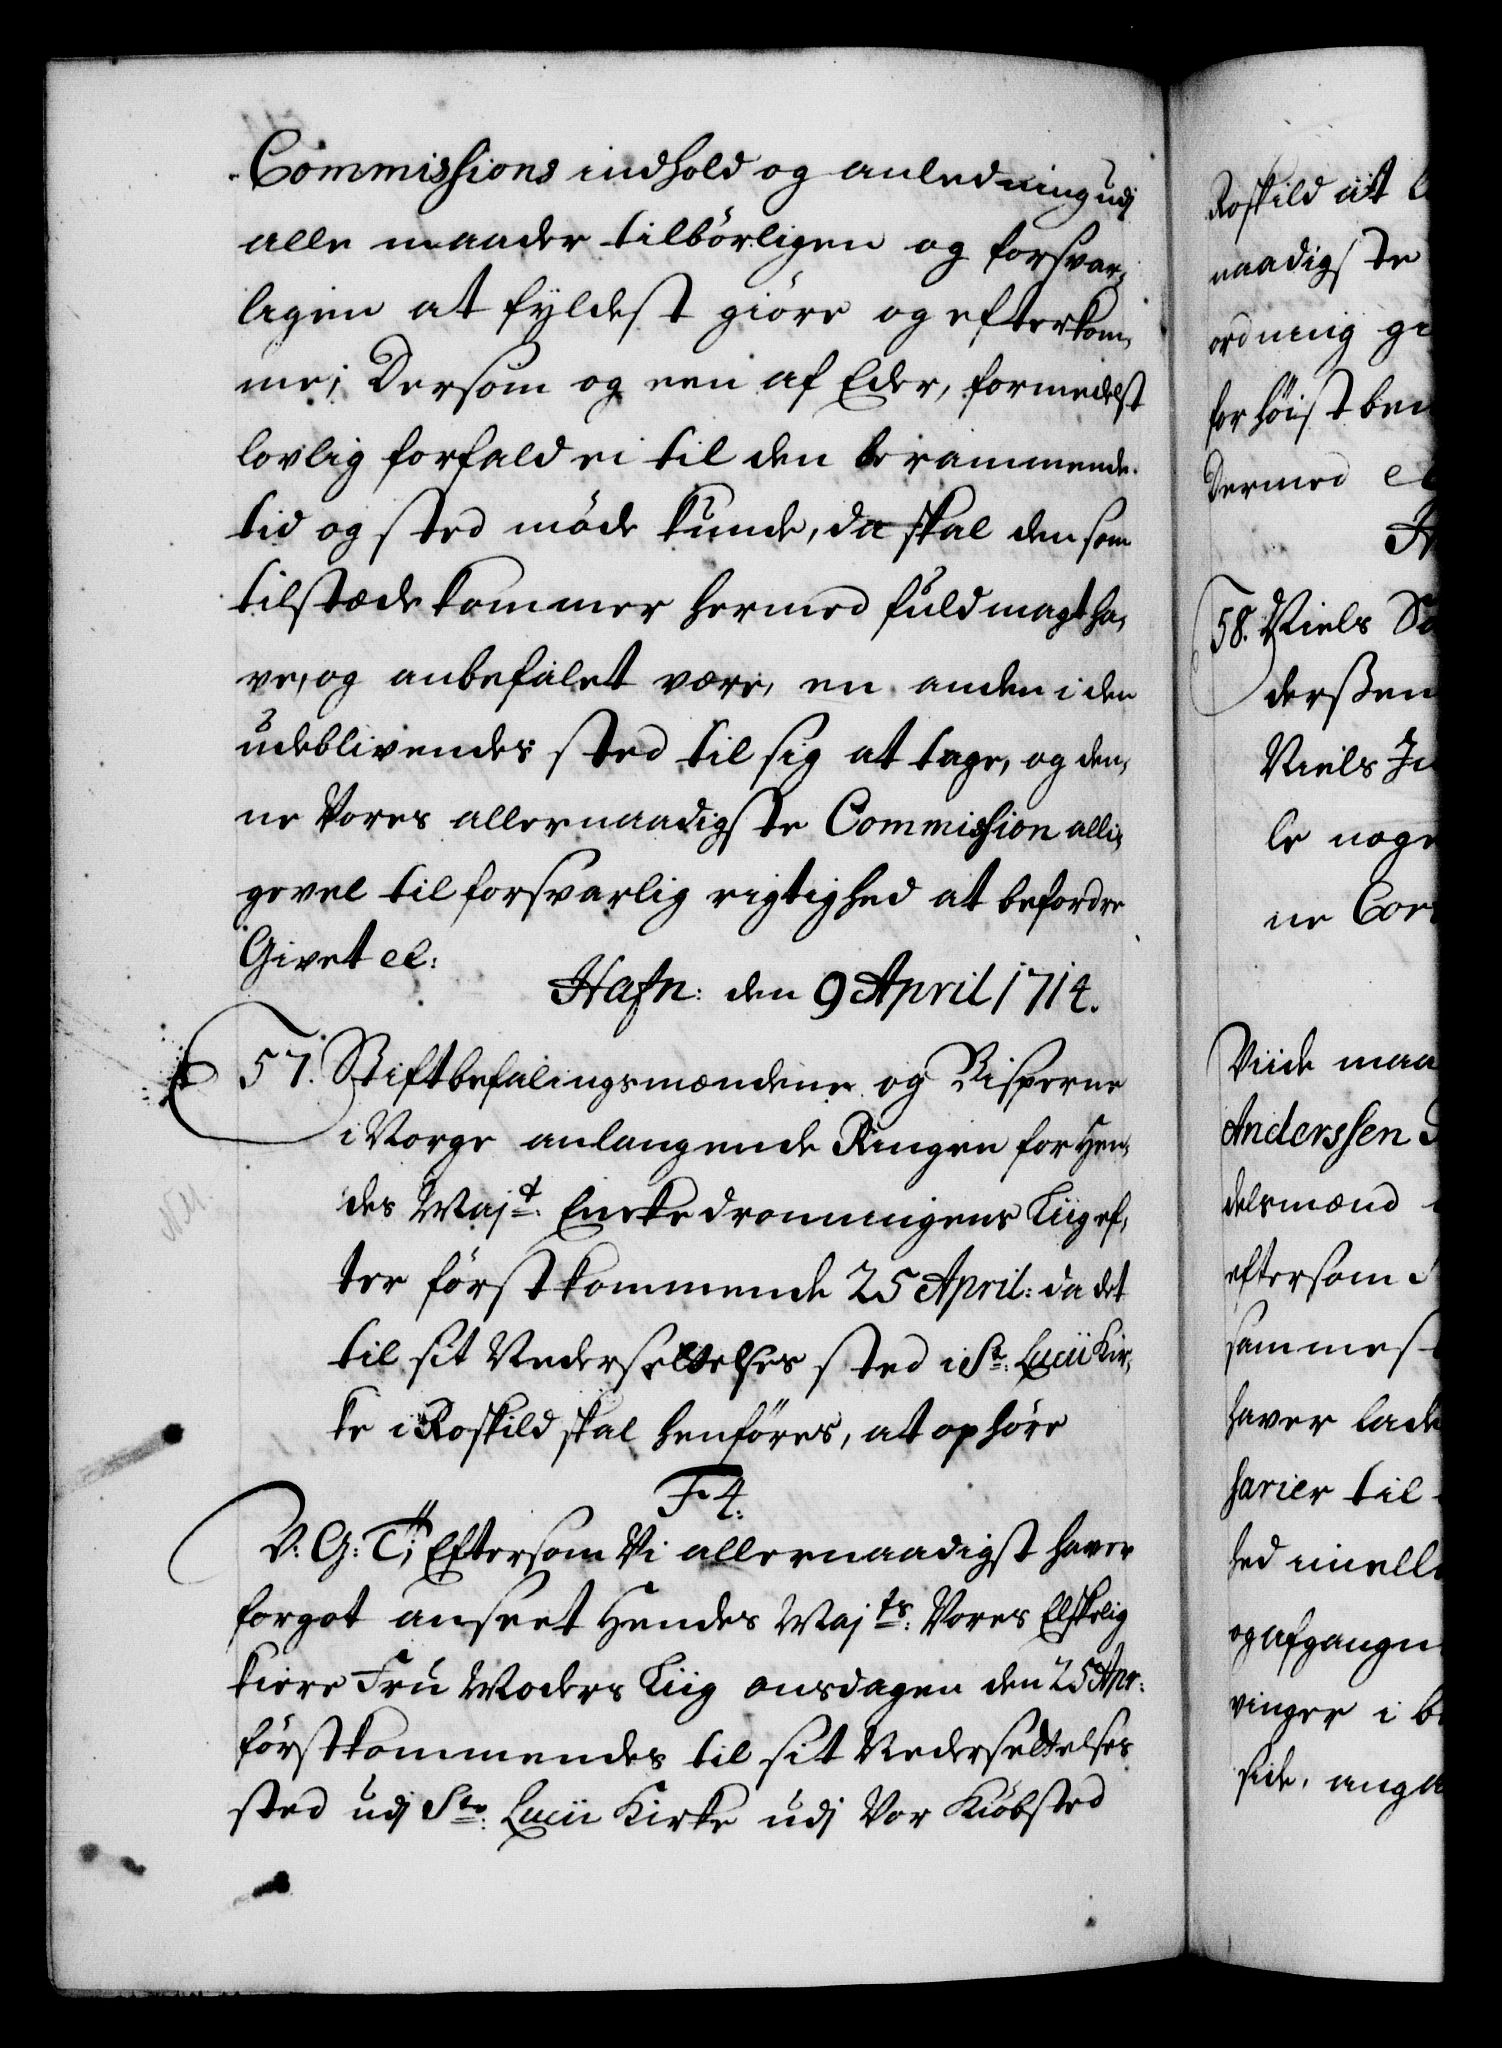 Commissions indhold og anledning udj
alle maader tilbörligen og forsvar,
ligen at fyldest giöre og efterkom,
me; Dersom og een af Eder, formedelst
lovlig forfald ei til den berammende
tid og sted möde kunde, da skal den som
tilstæde kommer hermed fuldmagt ha,
ve, og anbefalet være, en anden i den
udeblivendes sted til sig at tage, og den,
ne Vores allernaadigste Commission alli,
gevel til forsvarlig rigtighed at befordre
Givet etc:
Hafn: den 9 April 1714.
57. Stiftbefalingsmændene og Bisperne
i Norge anlangende Ringen for Hen,
des Majt: Enckedronningens Liig ef,
ter först kommende 25 April: da det
til sit Nedersettelses sted i St: Lucii Kir,
ke i Roskild skal henföres, at ophöre
F 4.
V: G: T; Eftersom Vi allernaadigst haver
forgot anseet Hendes Majts: Vores Elskelig
kiere Fru Moders Liig onsdagen den 25 Apr:
förstkommendes til sit Nedersettelses
sted udj Ste: Lucii Kirke udj Vor Kiöbsted
Roskild at
naadigste
ordning
for höistbe
Dermed
58. Niels
derßen
Niels
le noge
ne
Viide
Anderssen
delsmænd
eftersom
sammest
haver lade
harier til
hed imell
og afgangn
vinger i
side, anga